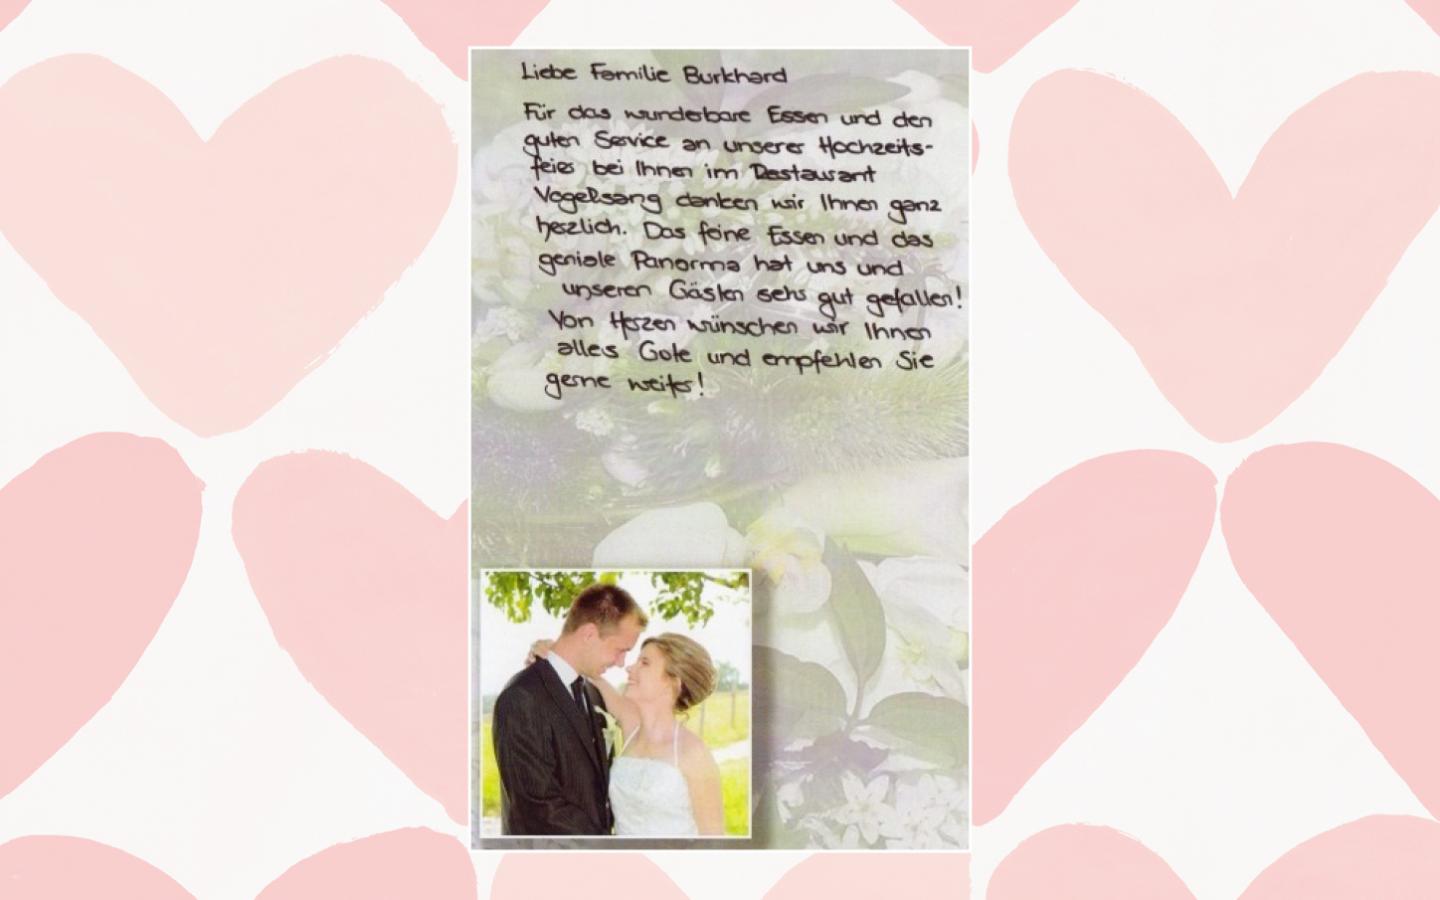 Liebe Familie Burkhard
Für das wunderbare Essen und den
guten Service an unserer Hochzeits-
feier bei Ihnen im Restaurant
Vogelsang danken wir Ihnen ganz
herzlich. Das feine Essen und das
geniale Panorma hat uns und
unseren Gästen sehr gut gefallen!
Von Herzen wünschen wir Ihnen
alles Gute und empfehlen Sie
gerne weiter!